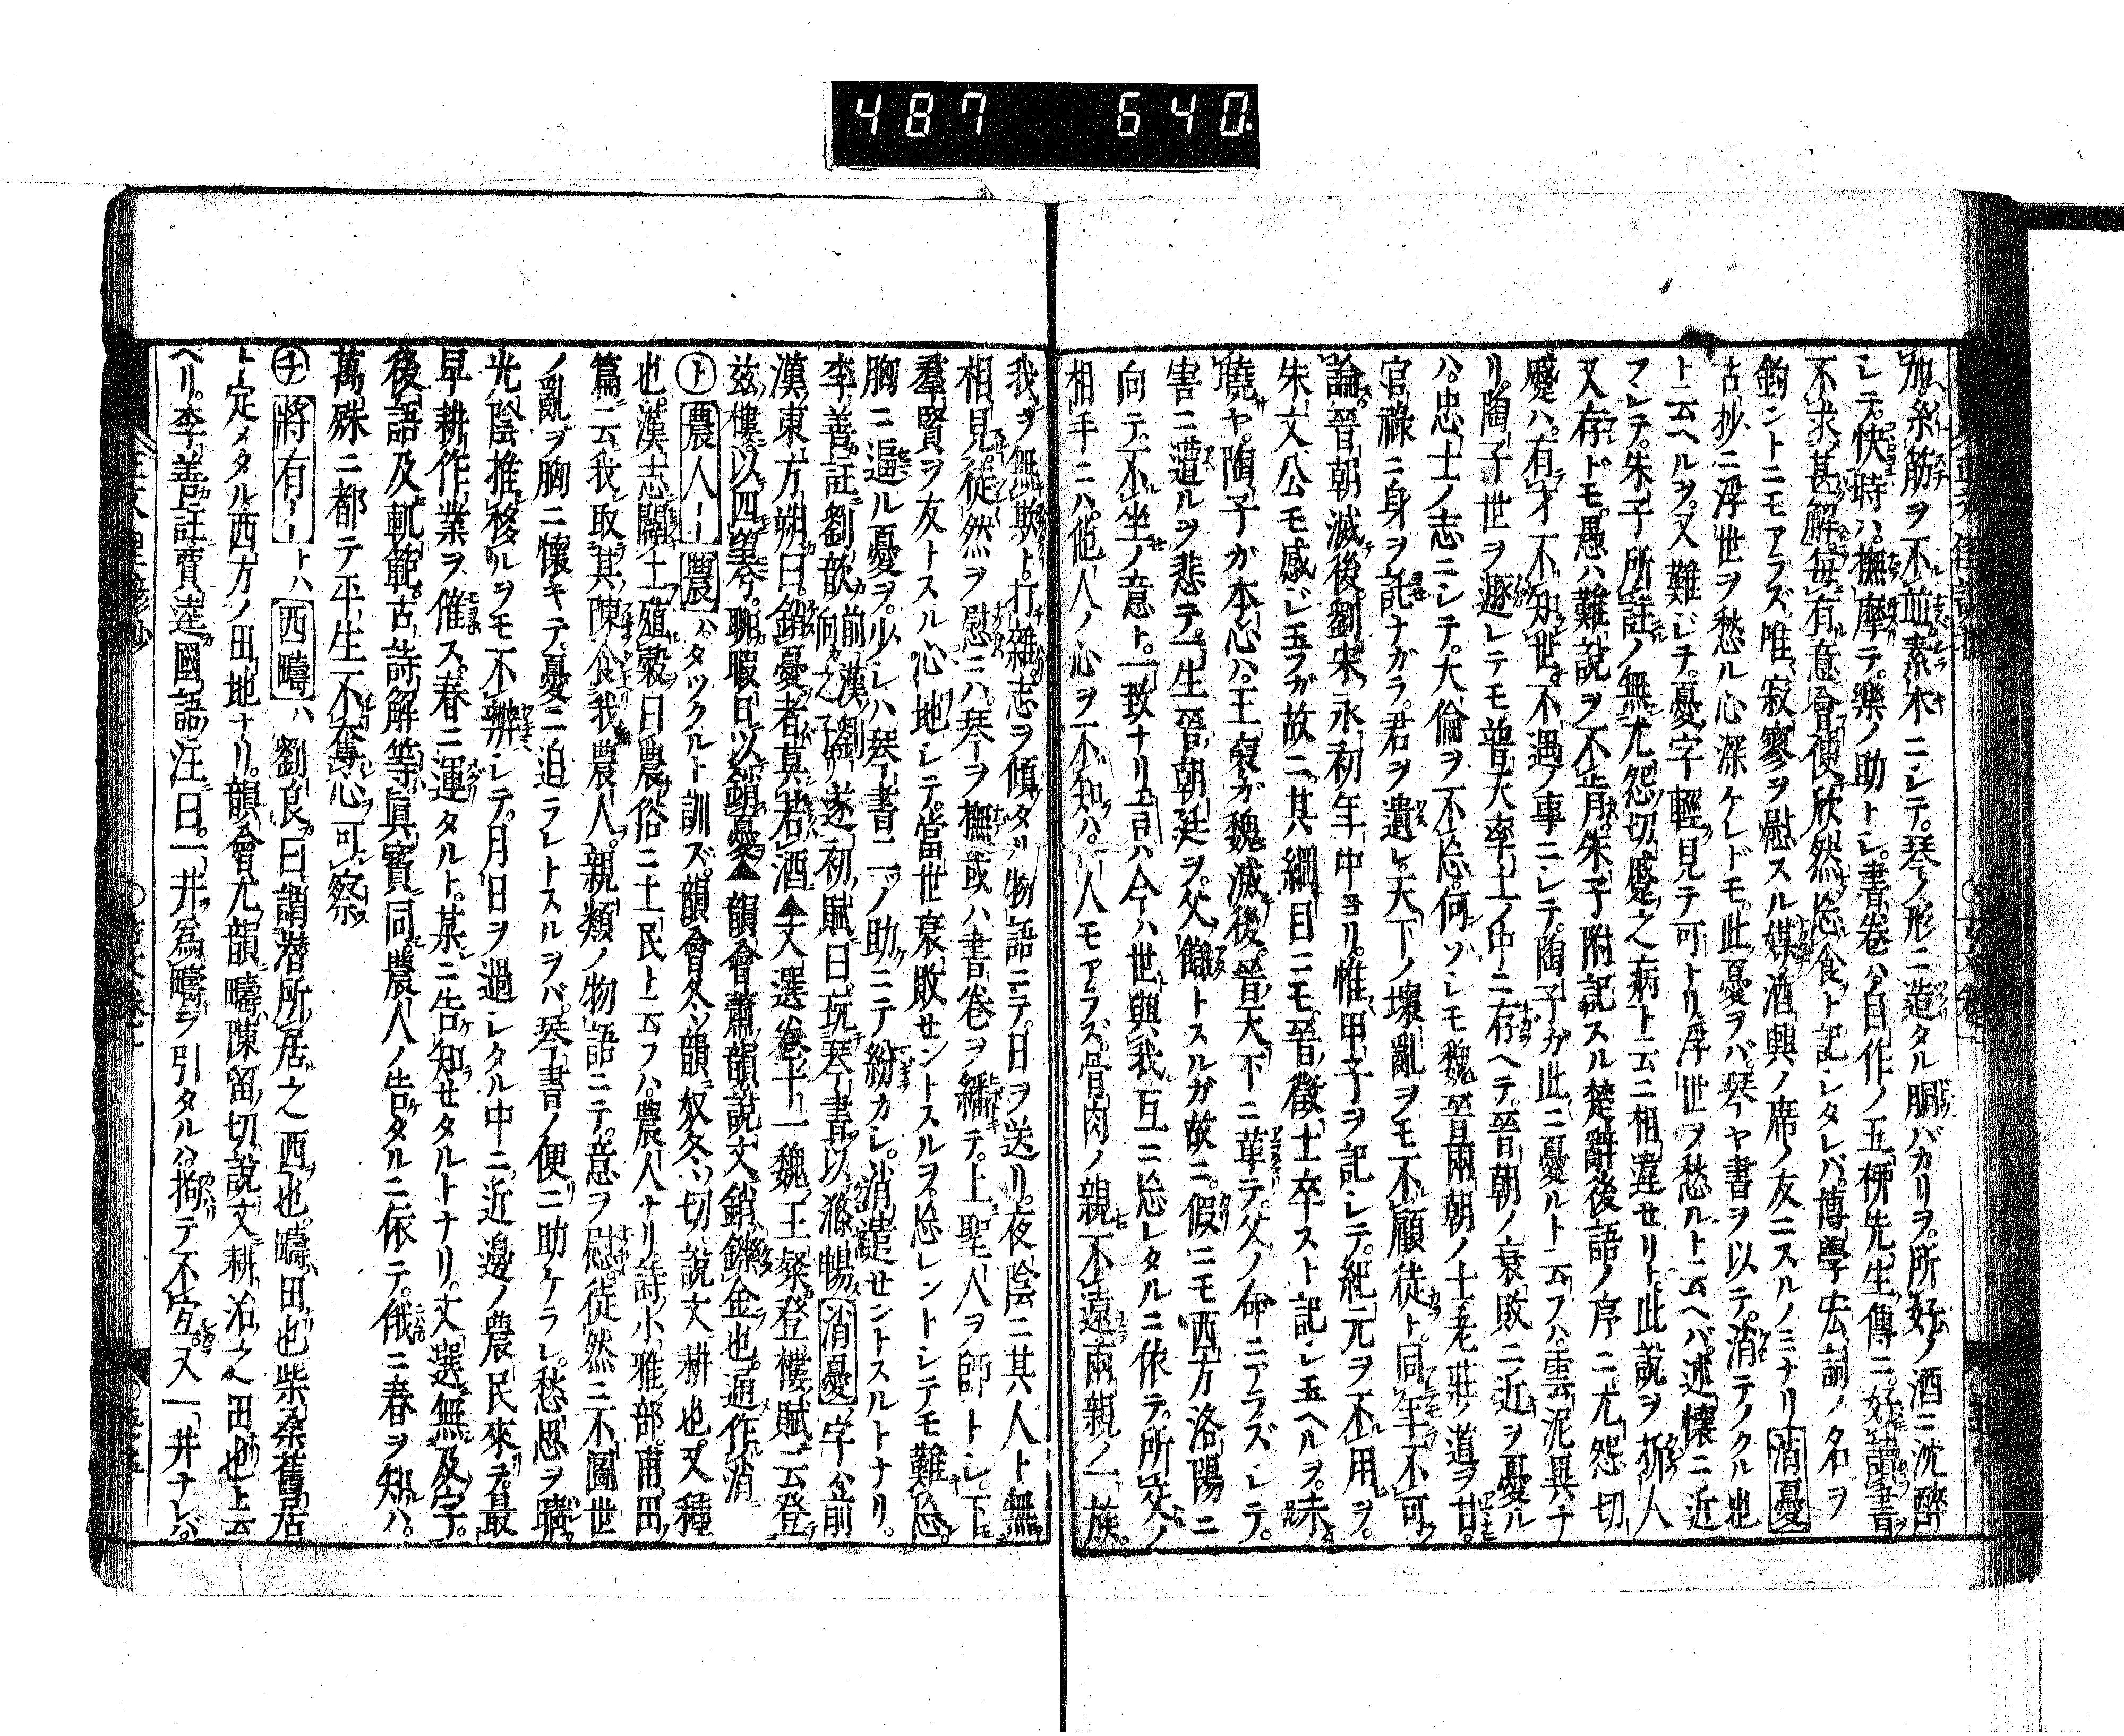 487 640.
加糸筋ヲ不並素木ニシテ琴ノ形ニ造タル胴バカリヲ所好ノ酒ニ沈醉
シテ快時ハ撫摩テ樂ノ助トシ書卷ハ自作ノ五柳先生傳ニ好讀書
不求甚解毎有意會便欣然忘食ト記シタレバ博學宏詞ノ名ヲ
釣ントニモアラズ唯寂寥ヲ慰スル媒酒興ノ席ノ友ニスルノミナリ消憂
古抄ニ浮世ヲ愁ル心深ケレドモ此憂ヲバ琴ヤ書ヲ以テ消テノクル也
ト云ヘルヲ又難ジテ憂字輕見テ可トリ浮世ヲ愁ルト云ヘバ述懷ニ近
フシテ朱子所註ノ無尤怨切蹙之病ト云ニ相違セリト此說ヲ
又存ドモ愚ハ難說ヲ不肯朱子附記スル楚辭後語ノ序ニ尤怨切
蹙ハ有才不知世不遇ノ事ニシテ陶子ガ此ニ憂ルト云フハ雲泥異ナ
リ陶子世ヲ遯レテモ普天率土ノ中ニ存ヘテ晉朝ノ衰敗ニ近ヲ憂ル
ハ忠士ノ志ニシテ大倫ヲ不忘何ゾシモ魏晉兩朝ノ士老莊ノ道ヲ甘
官祿ニ身ヲ託ナガラ君ヲ遺レ天下ノ壞亂ヲモ不顧徒ト同年不可
論晉朝滅後劉宋永初年中ヨリ惟甲子ヲ記シテ紀元ヲ不用ヲ
朱文公モ感ジ玉フガ故ニ其綱目ニモ晉徵士卒スト記シ玉ヘルヲ未
曉ヤ陶子ガ本心ハ王裒ガ魏滅後晉天下ニ革テ父ノ命ニアラズシテ
害ニ遭ルヲ悲テ一生晉朝廷ヲ父讎トスルガ故ニ假ニモ西方洛陽ニ
向テ不坐ノ意ト一致ナリ言ハ今ハ世與我互ニ忘レタルニ依テ所交ノ
相手ニハ他人ノ心ヲ不知ハ一人モアラズ骨肉ノ親不遠兩親ノ一族
我ヲ無欺ト打雜志ヲ傾タル物語ニテ日ヲ送リ夜陰ニ其人ト無
相見徒然ヲ慰ニハ琴ヲ撫或ハ書卷ヲ繙テ上聖人ヲ師トシ下
羣賢ヲ友トスル心地シテ當世衰敗セントスルヲ忘レントシテモ難忘
胸ニ逼ル憂ヲ少シハ琴書二ノ助ニテ紛カシ消遣セントスルトナリ
李善註劉歆前漢劉向之子遂初賦曰玩琴書以滌暢消憂字公前
漢東方朔曰銷憂者莫若酒▲文選卷十一魏王粲登樓賦云登
茲樓以四望兮聊暇日以銷憂▲韻會蕭韻說文銷鑠金也通作消
㋣農人農ハタツクルト訓ズ韻會冬韻奴冬切說文耕也又種
也漢志闢土殖穀曰農俗ニ土民ト云フハ農人ナリ詩小雅部甫田
篇云我取其陳食我農人親類ノ物語ニテ意ヲ慰徒然ニ不圖世
ノ亂ヲ胸ニ懷キテ憂ニ迫ラレトスルヲバ琴書ノ便ニ助ケラレ愁思ヲ
光陰推移ルヲモ不辨シテ月日ヲ過シタル中ニ近邊ノ農民來テ最
早耕作業ヲ催ス春ニ運タルト某ニ告知セタルトナリ文選無及字
後語及軌範古詩解等眞寶同農人ノ告タルニ依テ俄ニ春ヲ知ハ
萬殊ニ都テ平生不奪心可察
㋠將有トハ西疇ハ劉良曰謂潛所居之西也疇田也柴桑舊居
ト定メタル西方ノ田地ナリ韻會尤韻疇陳留切說文耕治之田也上云
ヘリ李善註賈逵國語注曰一井爲疇ヲ引タルハ拘テ不宜又一井ナレバ